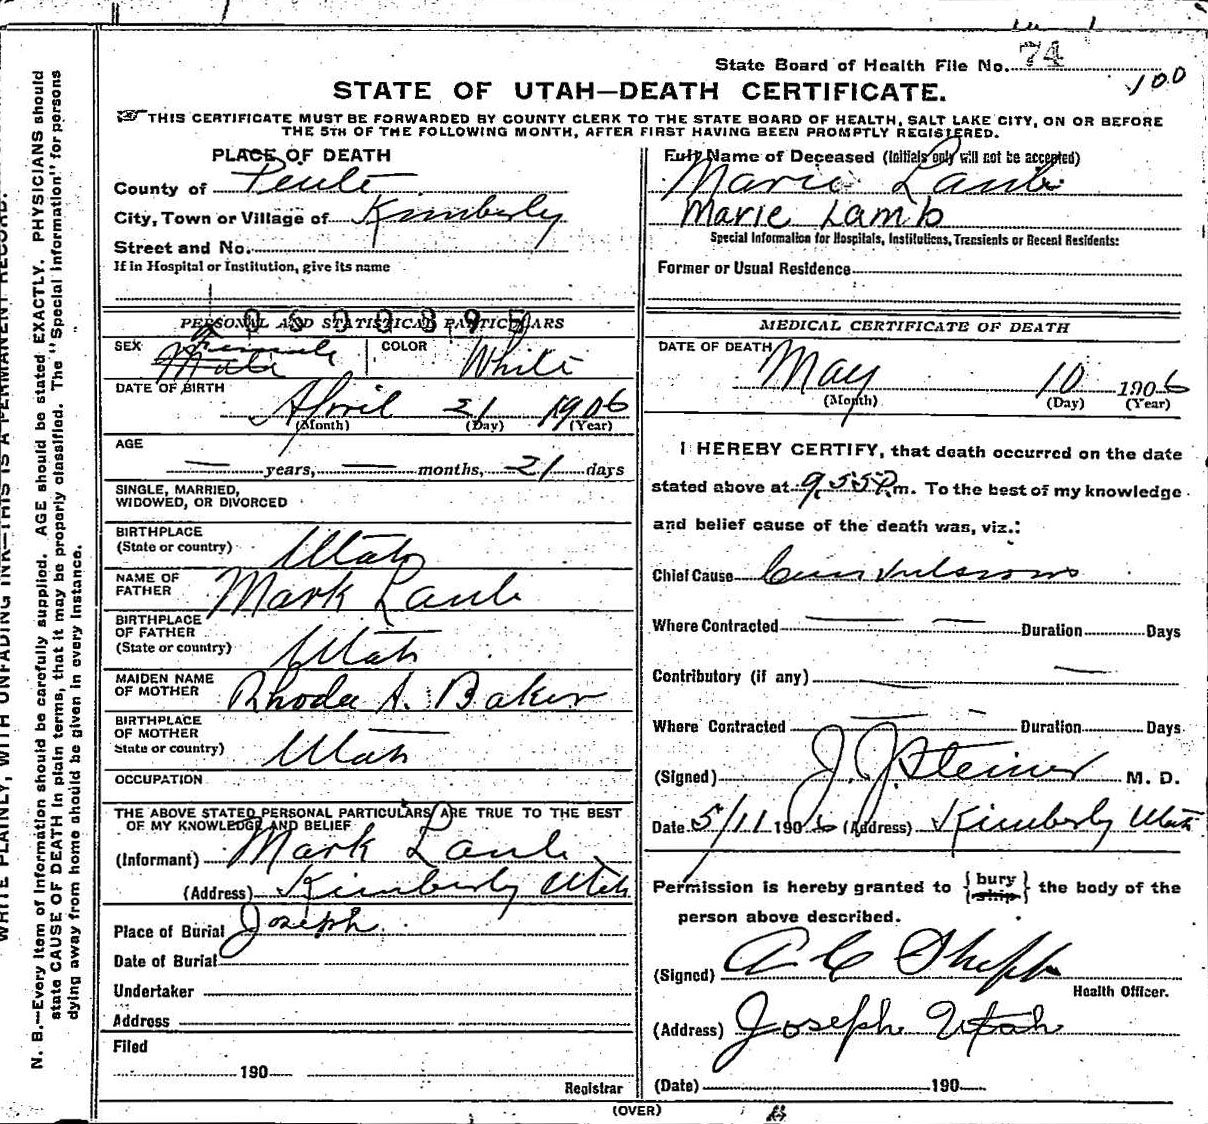 State Board of Health File No. 74
100
STATE OF UTAH—DEATH CERTIFICATE.
THIS CERTIFICATE MUST BE FORWARDED BY COUNTY CLERK TO THE STATE BOARD OF HEALTH, SALT LAKE CITY, ON OR BEFORE
THE 5TH OF THE FOLLOWING MONTH, AFTER FIRST HAVING BEEN PROMPTLY REGISTERED.
PLACE OF DEATH
County of Peute
City, Town or Village of Kimberly
Street and No.
If in Hospital or Institution, give its name
Full Name of Deceased (Initials only will not be accepted)
Marie Lamb
Marie Lamb
Special Information for Hospitals, Institutions, Transients or Recent Residents:
Former or Usual Residence
PERSONAL AND STATISTICAL PARTICULARS
SEX Male Female COLOR White
DATE OF BIRTH
April 21 1906
(Month) (Day) (Year)
AGE
— years, — months, 21 days
SINGLE, MARRIED,
WIDOWED, OR DIVORCED
BIRTHPLACE
(State or country) Utah
NAME OF
FATHER Mark Lamb
BIRTHPLACE
OF FATHER
(State or country) Utah
MAIDEN NAME
OF MOTHER Rhoda A. Baker
BIRTHPLACE
OF MOTHER
State or country) Utah
OCCUPATION
THE ABOVE STATED PERSONAL PARTICULARS ARE TRUE TO THE BEST
OF MY KNOWLEDGE AND BELIEF
(Informant) Mark Lamb
(Address) Kimberly Utah
Place of Burial Joseph
Date of Burial
Undertaker
Address
Filed
190
Registrar
MEDICAL CERTIFICATE OF DEATH
DATE OF DEATH
May 10 1906
(Month) (Day) (Year)
I HEREBY CERTIFY, that death occurred on the date
stated above at 9.55 P.m. To the best of my knowledge
and belief cause of the death was, viz.:
Chief Cause Convulsions
Where Contracted — — Duration Days
Contributory (if any) — —
Where Contracted — — Duration Days
(Signed) J. J. Steiner M. D.
Date 5/11 1906 (Address) Kimberly Utah
Permission is hereby granted to { bury
ship } the body of the
person above described.
(Signed) A C Shepp
Health Officer.
(Address) Joseph Utah
(Date) 190
(OVER)
N. B.—Every item of Information should be carefully supplied. AGE should be stated EXACTLY. PHYSICIANS should
state CAUSE OF DEATH in plain terms, that it may be properly classified. The "Special Information" for persons
dying away from home should be given in every instance.
WRITE PLAINLY, WITH UNFADING INK—THIS IS A PERMANENT RECORD.